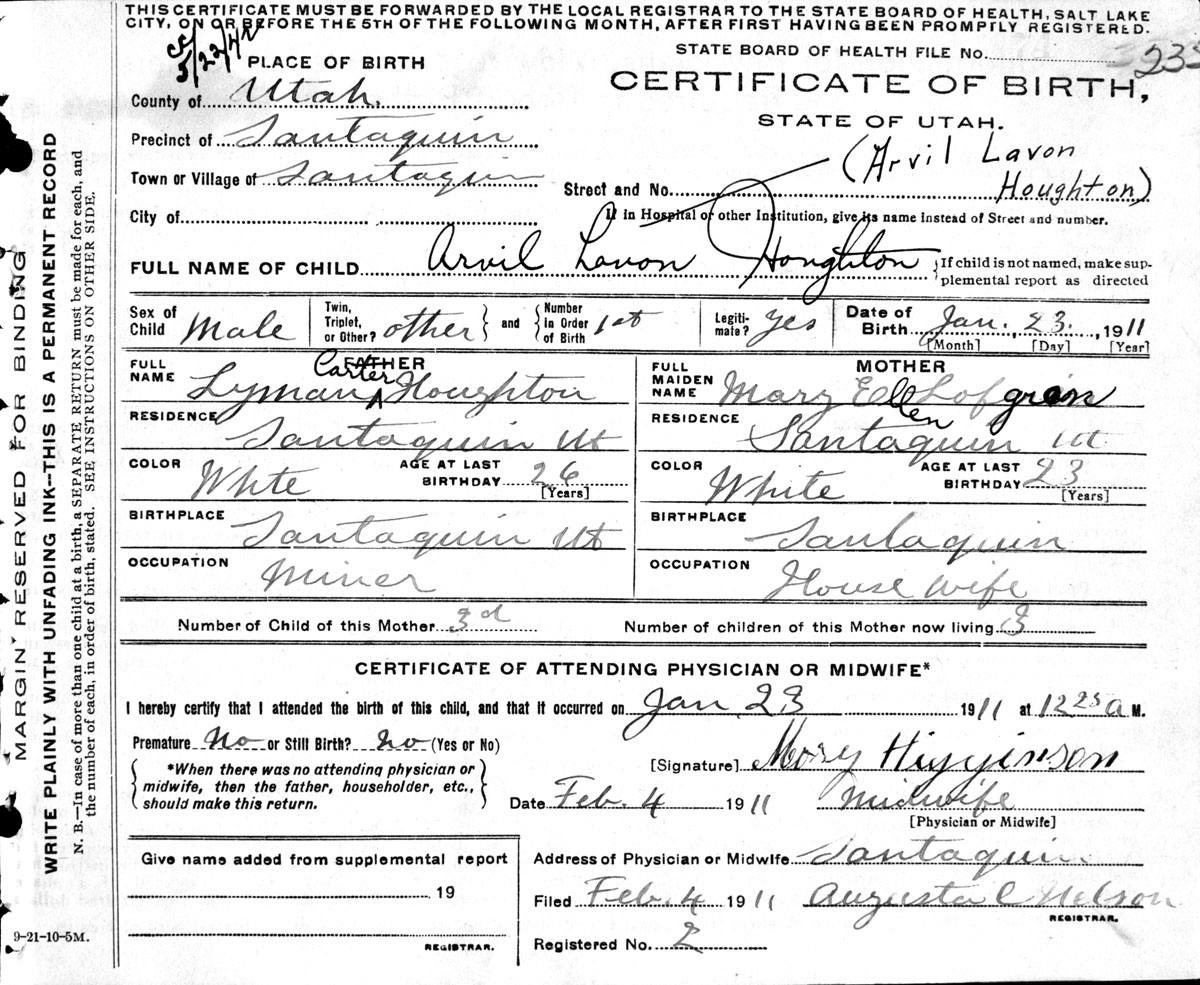 THIS CERTIFICATE MUST BE FORWARDED BY THE LOCAL REGISTRAR TO THE STATE BOARD OF HEALTH, SALT LAKE
CITY, ON OR BEFORE THE 5TH OF THE FOLLOWING MONTH, AFTER FIRST HAVING BEEN PROMPTLY REGISTERED.
5/22/42
STATE BOARD OF HEALTH FILE No. 233
PLACE OF BIRTH
CERTIFICATE OF BIRTH,
STATE OF UTAH.
County of Utah.
Precinct of Santaquin
Town or Village of Santaquin
City of
Street and No. (Arvil Lavon
Houghton)
If in Hospital or other Institution, give its name instead of Street and number.
FULL NAME OF CHILD Arvil Lavon Houghton {If child is not named, make sup-
plemental report as directed
Sex of Child Male
Twin, Triplet, or Other? other} and {Number in Order of Birth 1st
Legiti-mate? yes
Date of Birth Jan. 23. 1911
[Month] [Day] [Year]
FATHER
FULL NAME Lyman Carter Houghton
RESIDENCE Santaquin Ut
COLOR White AGE AT LAST BIRTHDAY 26
[Years]
BIRTHPLACE Santaquin Ut
OCCUPATION Miner
MOTHER
FULL MAIDEN NAME Mary Ellen Lofgren
RESIDENCE Santaquin Ut
COLOR White AGE AT LAST BIRTHDAY 23
[Years]
BIRTHPLACE Santaquin
OCCUPATION House wife
Number of Child of this Mother 3d Number of children of this Mother now living 3
CERTIFICATE OF ATTENDING PHYSICIAN OR MIDWIFE*
I hereby certify that I attended the birth of this child, and that it occurred on Jan 23 1911 at 12 25 a M.
Premature No or Still Birth? No (Yes or No)
{*When there was no attending physician or
midwife, then the father, householder, etc.,
should make this return.}
[Signature] Mary Higginson
Date Feb. 4 1911 Midwife
[Physician or Midwife]
Give name added from supplemental report
19
REGISTRAR.
Address of Physician or Midwife Santaquin
Filed Feb. 4 1911 Augusta C Nelson
REGISTRAR.
Registered No. 2
MARGIN RESERVED FOR BINDING
WRITE PLAINLY WITH UNFADING INK--THIS IS A PERMANENT RECORD
N. B.--In case of more than one child at a birth, a SEPARATE RETURN must be made for each, and
the number of each, in order of birth, stated. SEE INSTRUCTIONS ON OTHER SIDE.
9-21-10-5M.